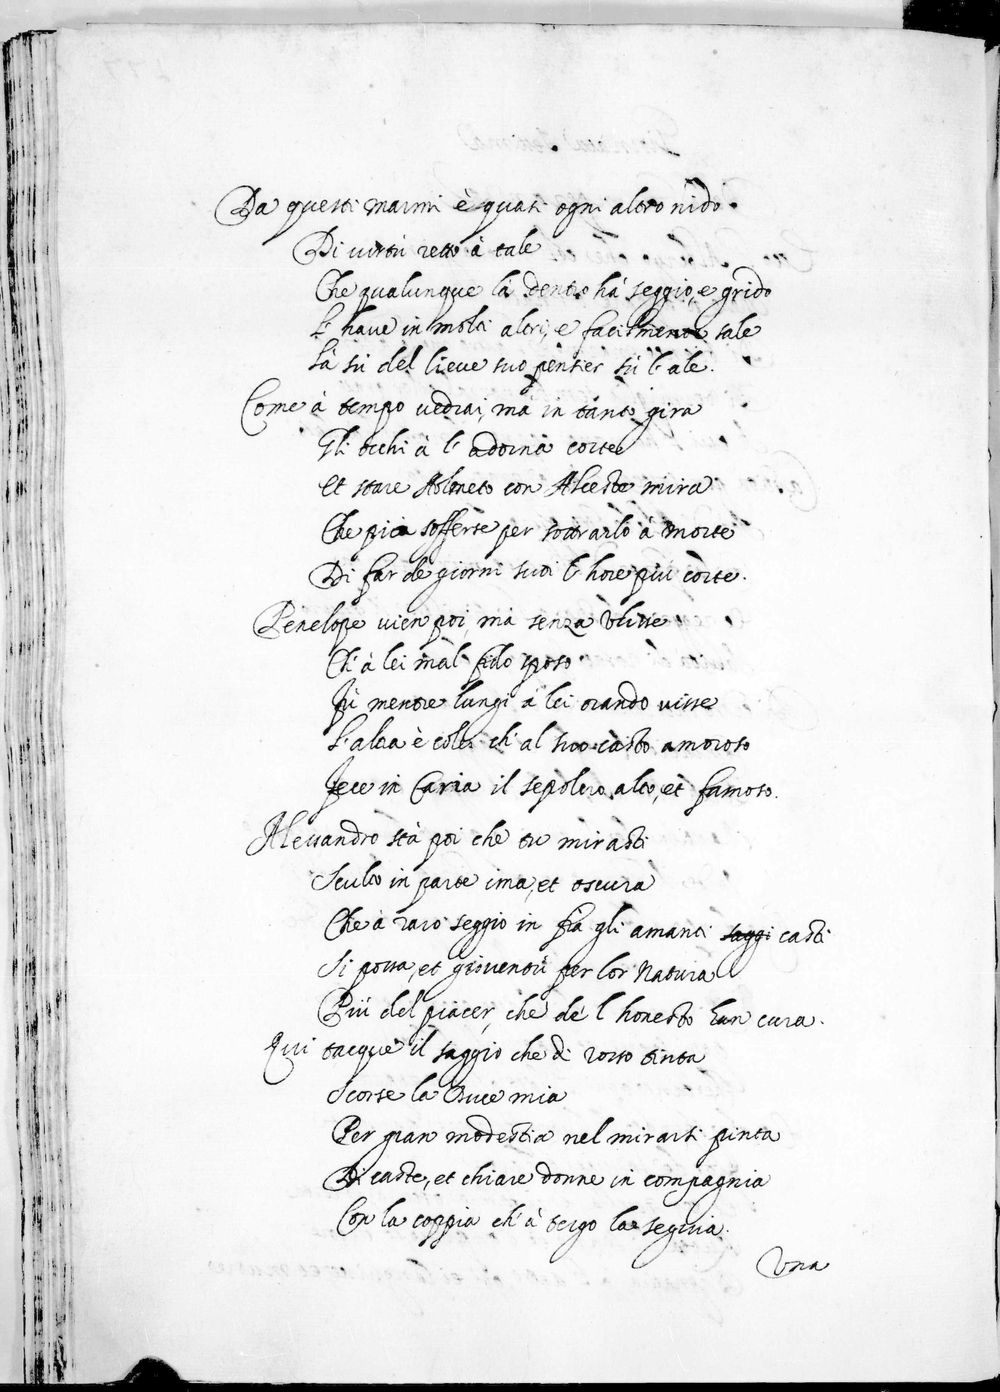 Da questi marmi è quasi ogni altro nido
Di virtù retto à tale
Che qualunque là dentro há seggio, e grido
L' have in molti altri, e facilmente sale
Là sù del lieve suo pensier sù l' ale.
Come à tempo vedrai, mà in tanto gira
Gli occhi à l' adorna corte
Et stare Admeto con Alceste mira
Che pria sofferse per sottrarlo à morte
Di far de giorni suoi l' hore più corte.
Penelope vien poi, mà senza Ulisse
Ch' à lei mal fido sposo
Fù mentre lungi à lei errando visse
L' altra è colei ch' al suo casto amoroso
Fece in Caria il sepolcro alto, et famoso.
Alessandro stà poi che tu mirasti
Sculto in parte ima, et oscura
Che à raro seggio in frà gli amanti saggi casti
Si possa, et gioventù per lor Natura
Più del piacer, che de l' honesto han cura.
Qui tacque il saggio che di rosso tinta
Scorse la Duce mia
Per gran modestia nel mirarsi pinta
Di caste, et chiare donne in compagnia
Con la coppia ch' à tergo la seguia.
Una